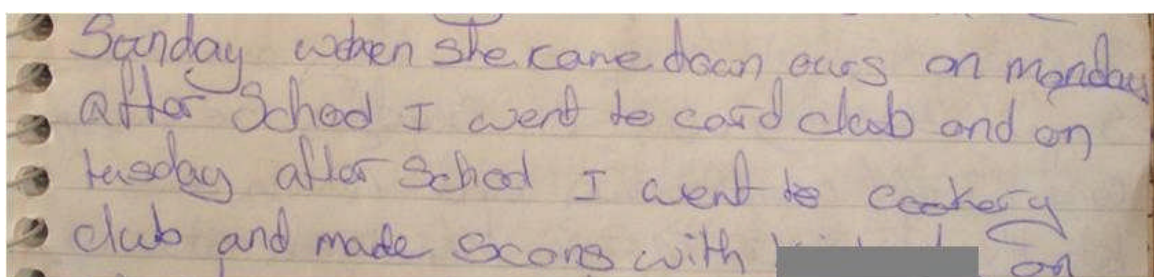 Sunday when she came down ours on monday
after School I went to card club and on
tusday after School I went to cookery
club and made scons with on